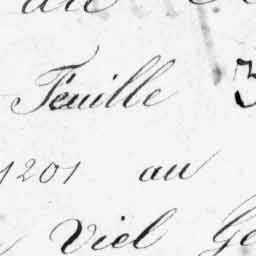 Feuille 3
1201 au
Viel Ge